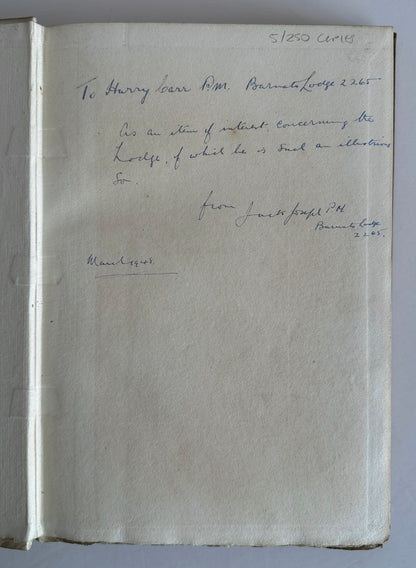 5/250 copies
To Harry Carr P.M. Barnato Lodge 2265
As an item of interest concerning the
Lodge, of which he is such an illustrious
Son.
from Joseph P.M.
Barnato Lodge
2265.
March